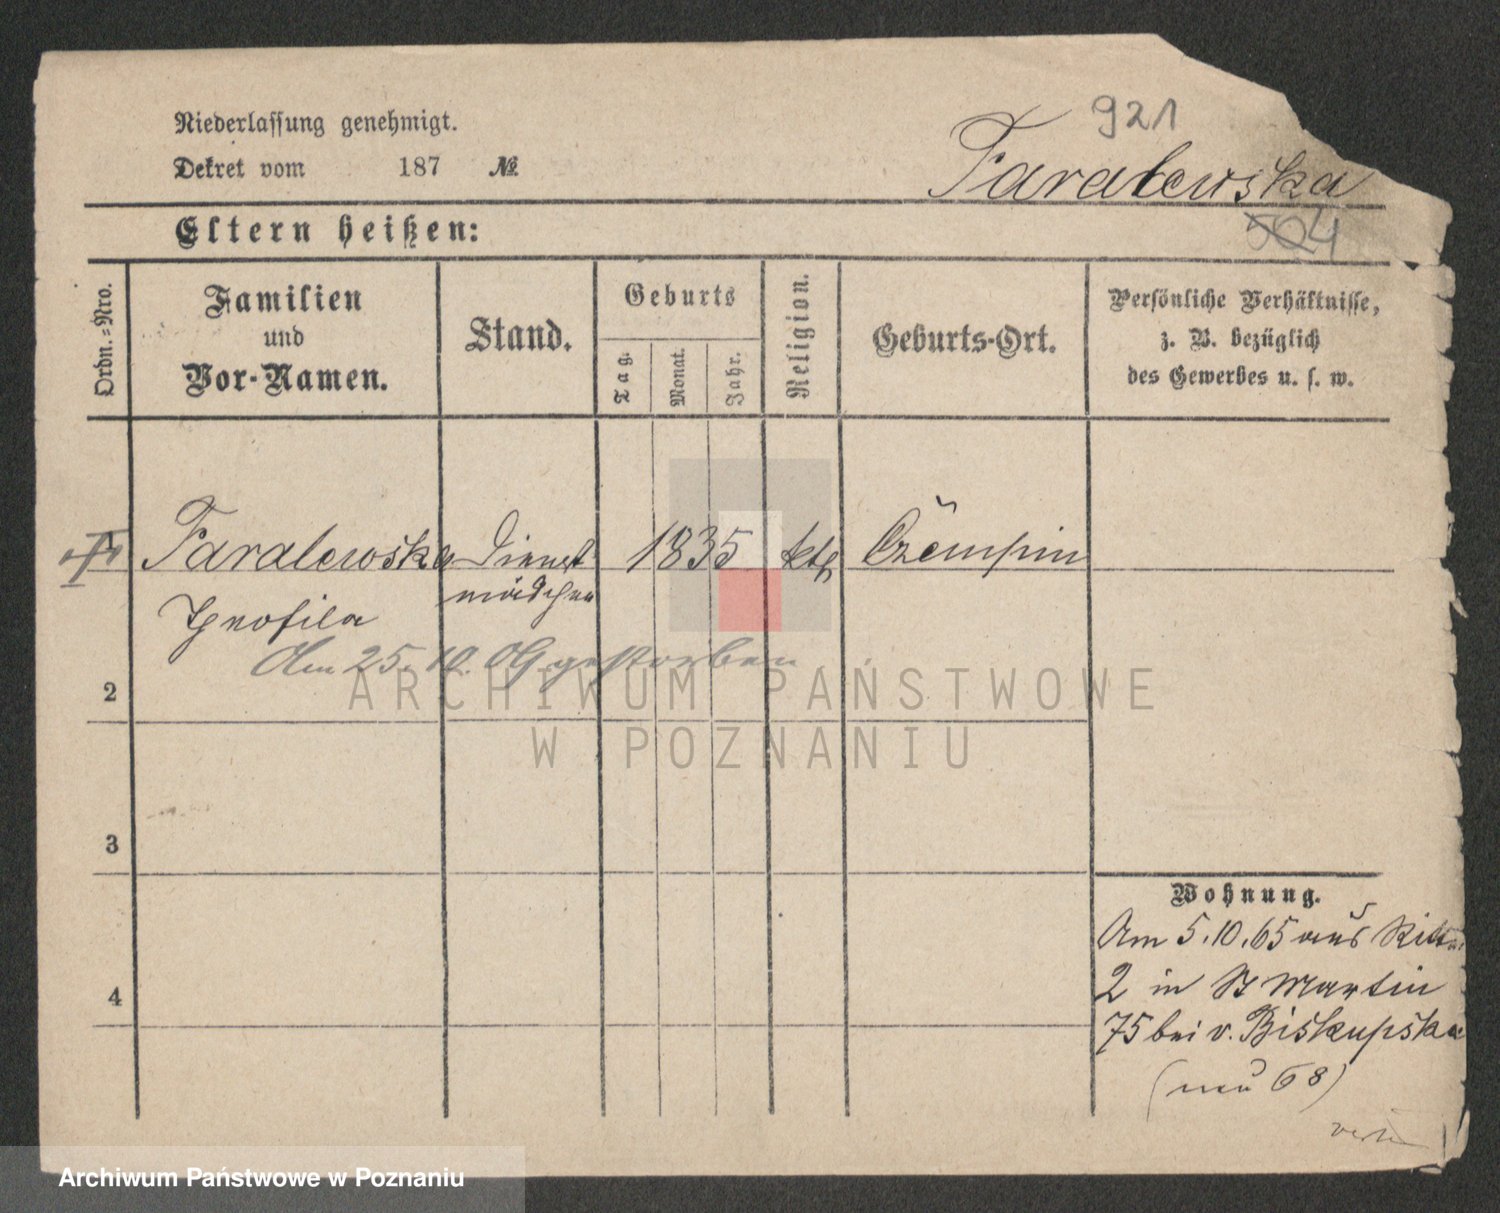 921
Niederlassung genehmigt.
Dekret vom 187 №
Faralewska
504
Eltern heißen:
Ordn.-Nro.
Familien
und
Vor-Namen.
Stand.
Geburts
Tag.
Monat.
Jahr.
Religion.
Geburts-Ort.
Persönliche Verhältnisse,
z. B. bezüglich
des Gewerbes u. s. w.
Faralewska Dienst 1835 kth Czempin
mädchen
Am 25. 10. 09 gestorben
2
3
4
Wohnung.
Am 5.10.65 aus
2 in St Martin
75 bei v. Biskupska
(neu 68)
ARCHIWUM PAŃSTWOWE
W POZNANIU
Archiwum Państwowe w Poznaniu